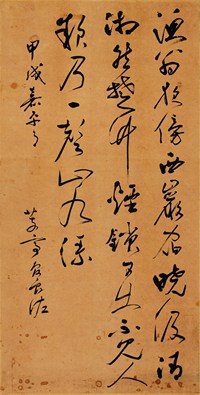 漁翁夜傍西巖宿曉汲清
湘然楚竹煙銷日出不見人
欸乃一聲山水綠
甲戌嘉平月